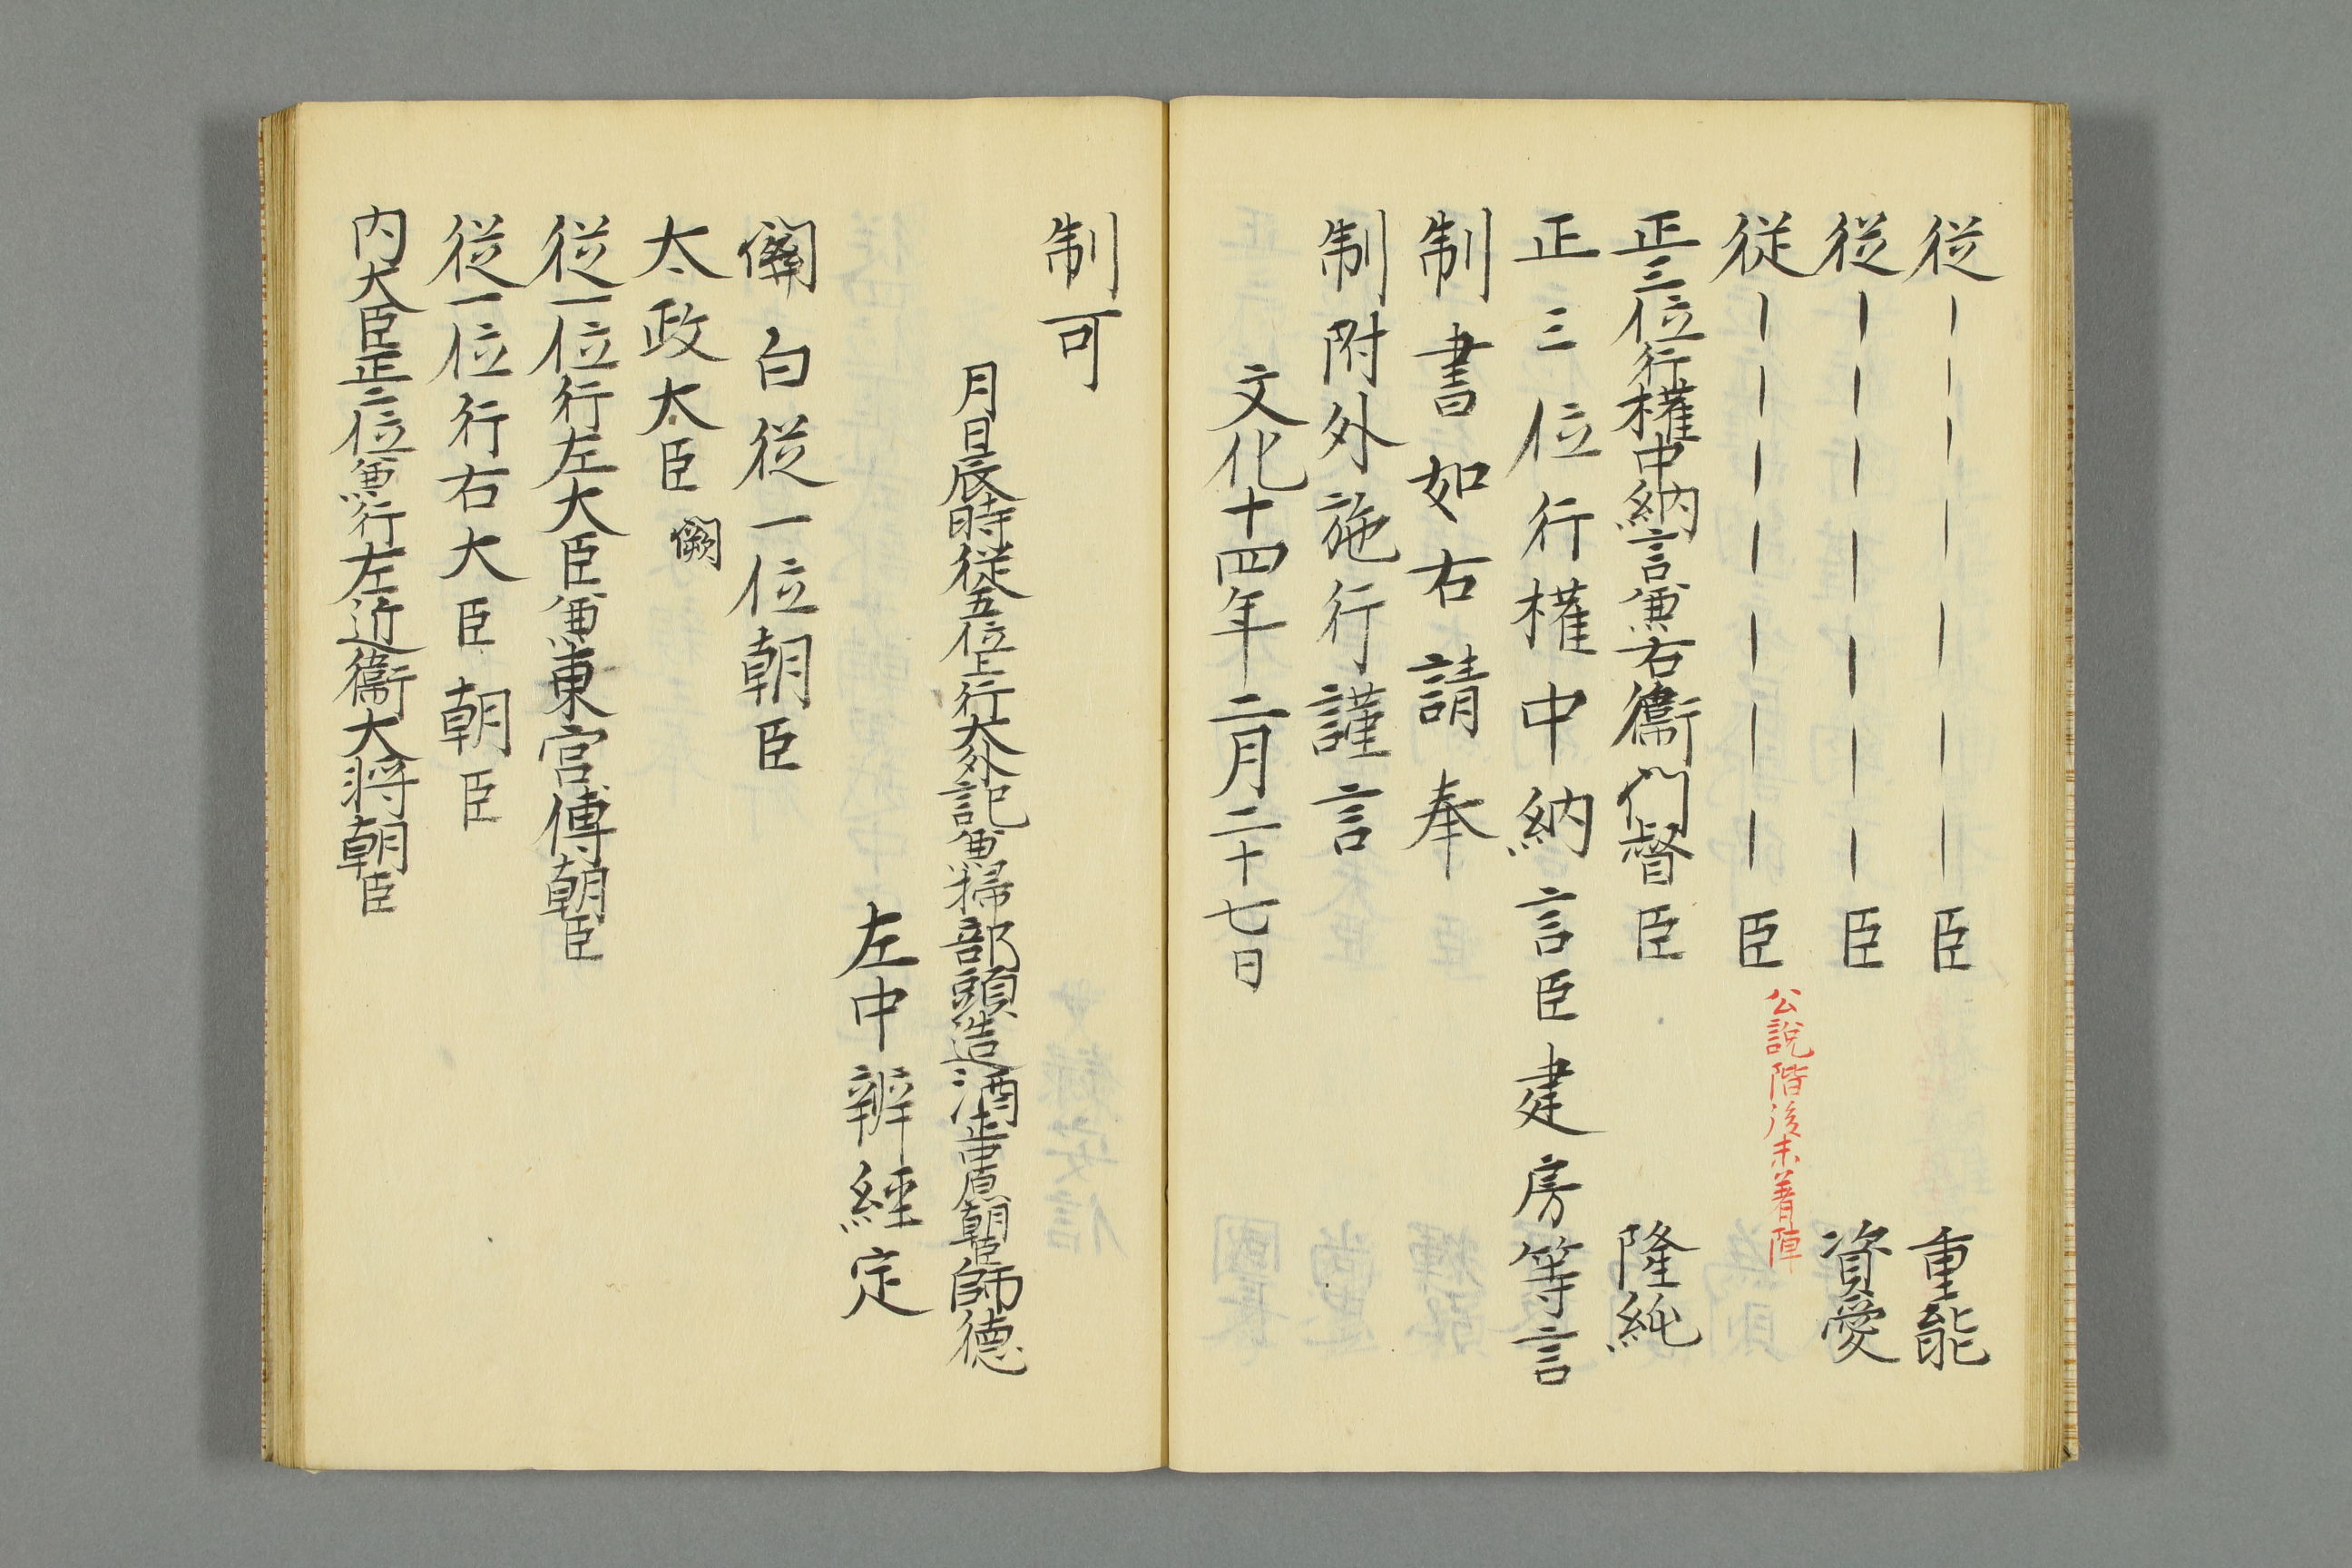 従｜｜｜｜｜｜｜臣 重能
従｜｜｜｜｜｜｜臣 資愛
従｜｜｜｜｜｜｜臣 公説階後未着陣
正三位行権中納言兼右衞門督臣 隆純
正三位行権中納言臣建房等言
制書如右請奉
制附外施行謹言
文化十四年二月二十七日
制可
月日辰時従五位上行大外記兼掃部頭造酒正中原朝臣師徳
左中辨経定
関白従一位朝臣
太政太臣 闕
従一位行左大臣兼東宮傅朝臣
従一位行右大臣朝臣
内大臣正二位兼行左近衞大将朝臣